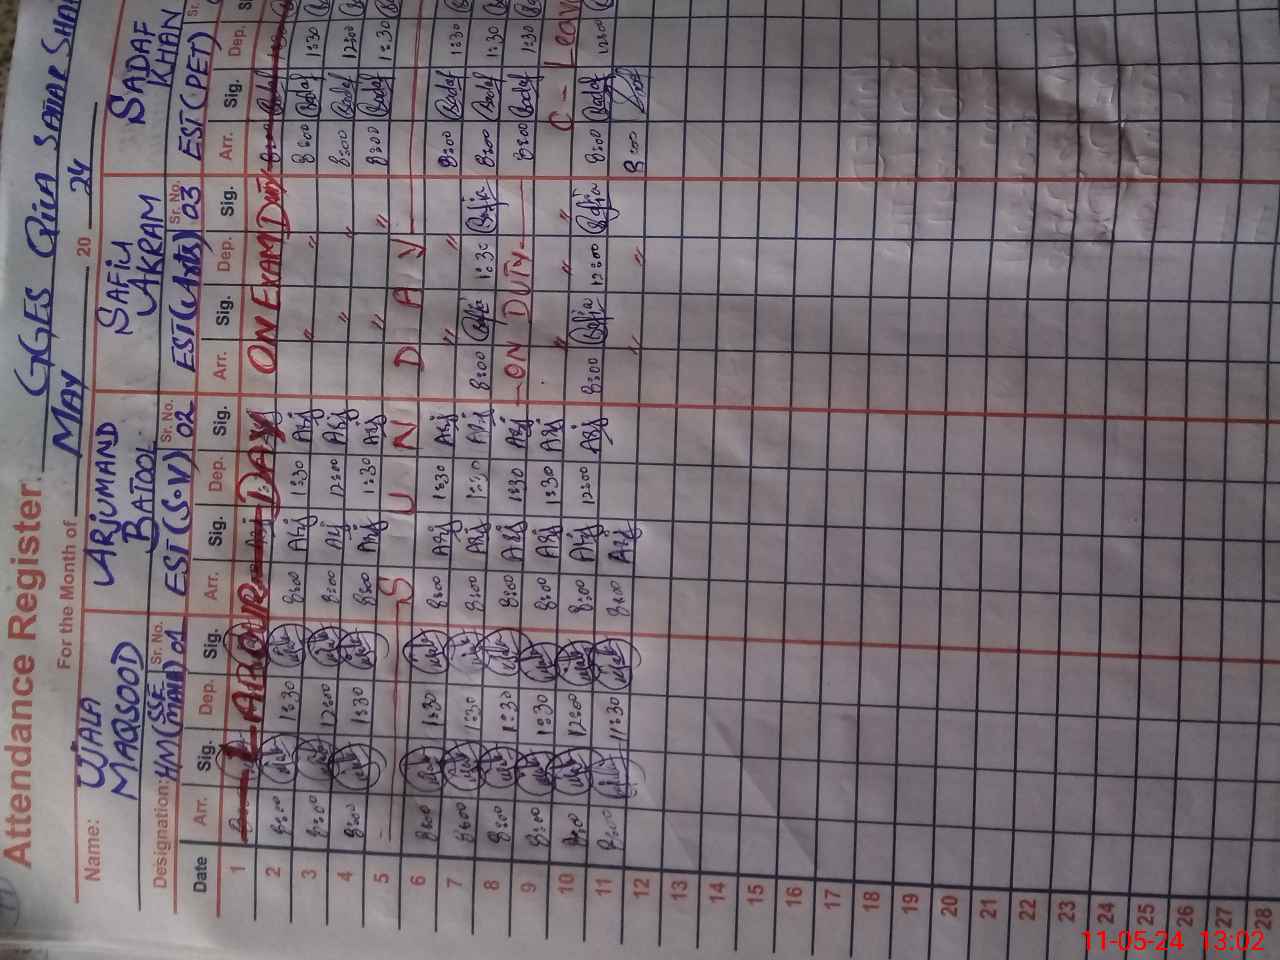 Attendance Register
GGES Qila Sattar Shah
For the Month of May 20 24
Name: UJALA MAQSOOD ARJUMAND BATOOL SAFIA AKRAM SADAF KHAN
Designation: HM (SSE Math) Sr. No. 01 EST (S.V) Sr. No. 02 EST (Arts) Sr. No. 03 EST (PET) Sr.
Date Arr. Sig. Dep. Sig. Arr. Sig. Dep. Sig. Arr. Sig. Dep. Sig. Arr. Sig. Dep.
1 LABOUR DAY ON EXAM DUTY
2 8:00 1:30 8:00 Arj 1:30 Arj " " 8:00 Sadaf 1:30
3 8:00 12:00 8:00 Arj 12:00 Arj " " 8:00 Sadaf 12:00
4 8:00 1:30 8:00 Arj 1:30 Arj " " 8:00 Sadaf 1:30
5 S U N D A Y
6 8:00 1:30 8:00 Arj 1:30 Arj " " 8:00 Sadaf 1:30
7 8:00 1:30 8:00 Arj 1:30 Arj 8:00 Safia 1:30 Safia 8:00 Sadaf 1:30
8 8:00 1:30 8:00 Arj 1:30 Arj ON DUTY 8:00 Sadaf 1:30
9 8:00 1:30 8:00 Arj 1:30 Arj " " " C - Leave
10 8:00 12:00 8:00 Arj 12:00 Arj 8:00 Safia 12:00 Safia 8:00 Sadaf 12:00
11 8:00 11:30 8:00 Arj " " 8:00
12
13
14
15
16
17
18
19
20
21
22
23
24
25
26
27
28
11-05-24 13:02